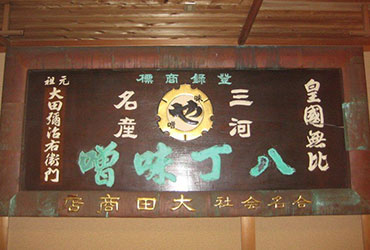 登録商標
皇國無比
三河
名産
味噌
八丁味噌
元祖
大田彌治右衛門
合名会社大田商店